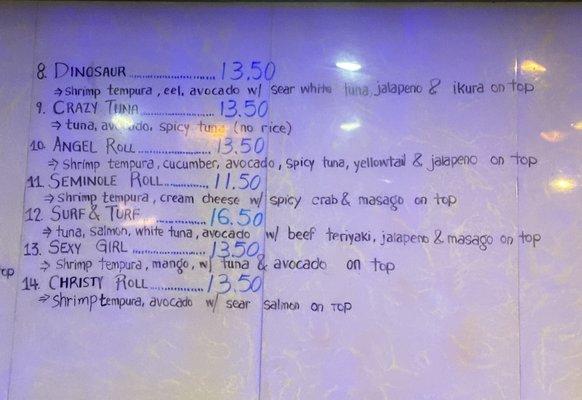 8. DINOSAUR ........................ 13.50
⇒ Shrimp tempura, eel, avocado w/ sear white tuna, jalapeno & ikura on top
9. CRAZY TUNA ................. 13.50
⇒ tuna, avocado, spicy tuna (no rice)
10. ANGEL ROLL ................ 13.50
⇒ Shrimp tempura, cucumber, avocado, spicy tuna, yellowtail & jalapeno on top
11. SEMINOLE ROLL ............ 11.50
⇒ Shrimp tempura, cream cheese w/ spicy crab & masago on top
12. SURF & TURF ................. 16.50
⇒ tuna, salmon, white tuna, avocado w/ beef teriyaki, jalapeno & masago on top
13. SEXY GIRL ..................... 13.50
⇒ Shrimp tempura, mango, w/ tuna & avocado on top
top
14. CHRISTY ROLL ............... 13.50
⇒ Shrimp tempura, avocado w/ sear salmon on top